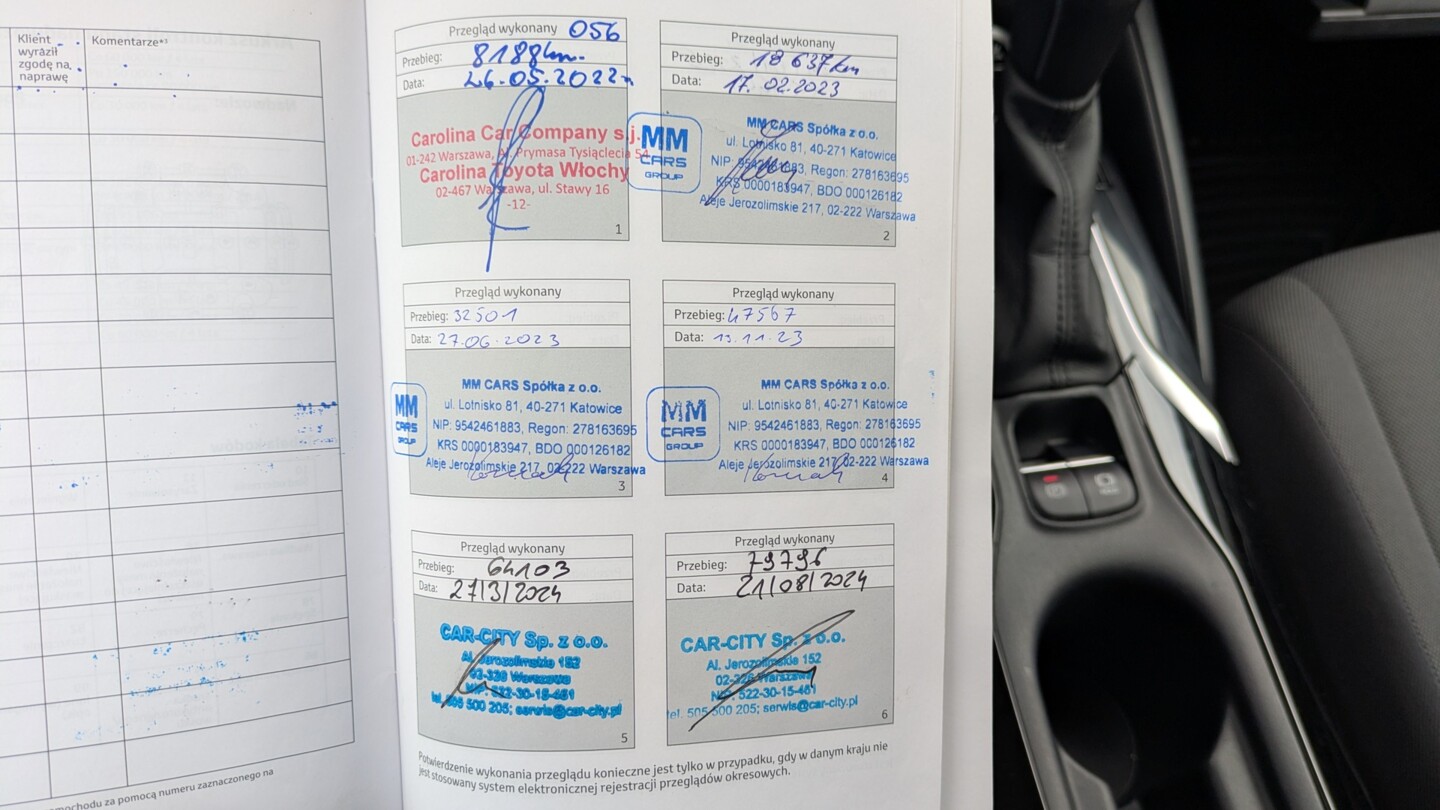 Klient
wyraził
zgodę na
naprawę
Komentarze*³
mochodu za pomocą numeru zaznaczonego na
Przegląd wykonany 056
Przebieg: 8188km.
Data: 26.05.2022r
Carolina Car Company s.j.
01-242 Warszawa, Al. Prymasa Tysiąclecia 54
Carolina Toyota Włochy
02-467 Warszawa, ul. Stawy 16
-12-
1
Przegląd wykonany
Przebieg: 18 637km
Data: 17.02.2023
MM
CARS
GROUP
MM CARS Spółka z o.o.
ul. Lotnisko 81, 40-271 Katowice
NIP: 9542461883, Regon: 278163695
KRS 0000183947, BDO 000126182
Aleje Jerozolimskie 217, 02-222 Warszawa
2
Przegląd wykonany
Przebieg: 32501
Data: 27.06.2023
MM
CARS
GROUP
MM CARS Spółka z o.o.
ul. Lotnisko 81, 40-271 Katowice
NIP: 9542461883, Regon: 278163695
KRS 0000183947, BDO 000126182
Aleje Jerozolimskie 217, 02-222 Warszawa
3
Przegląd wykonany
Przebieg: 47567
Data: 13.11.23
MM
CARS
GROUP
MM CARS Spółka z o.o.
ul. Lotnisko 81, 40-271 Katowice
NIP: 9542461883, Regon: 278163695
KRS 0000183947, BDO 000126182
Aleje Jerozolimskie 217, 02-222 Warszawa
4
Przegląd wykonany
Przebieg: 64103
Data: 27/3/2024
CAR-CITY Sp. z o.o.
Al. Jerozolimskie 152
02-326 Warszawa
NIP: 522-30-15-461
tel. 505 500 205; serwis@car-city.pl
5
Przegląd wykonany
Przebieg: 79796
Data: 21/08/2024
CAR-CITY Sp. z o.o.
Al. Jerozolimskie 152
02-326 Warszawa
NIP: 522-30-15-461
tel. 505 500 205; serwis@car-city.pl
6
Potwierdzenie wykonania przeglądu konieczne jest tylko w przypadku, gdy w danym kraju nie
jest stosowany system elektronicznej rejestracji przeglądów okresowych.